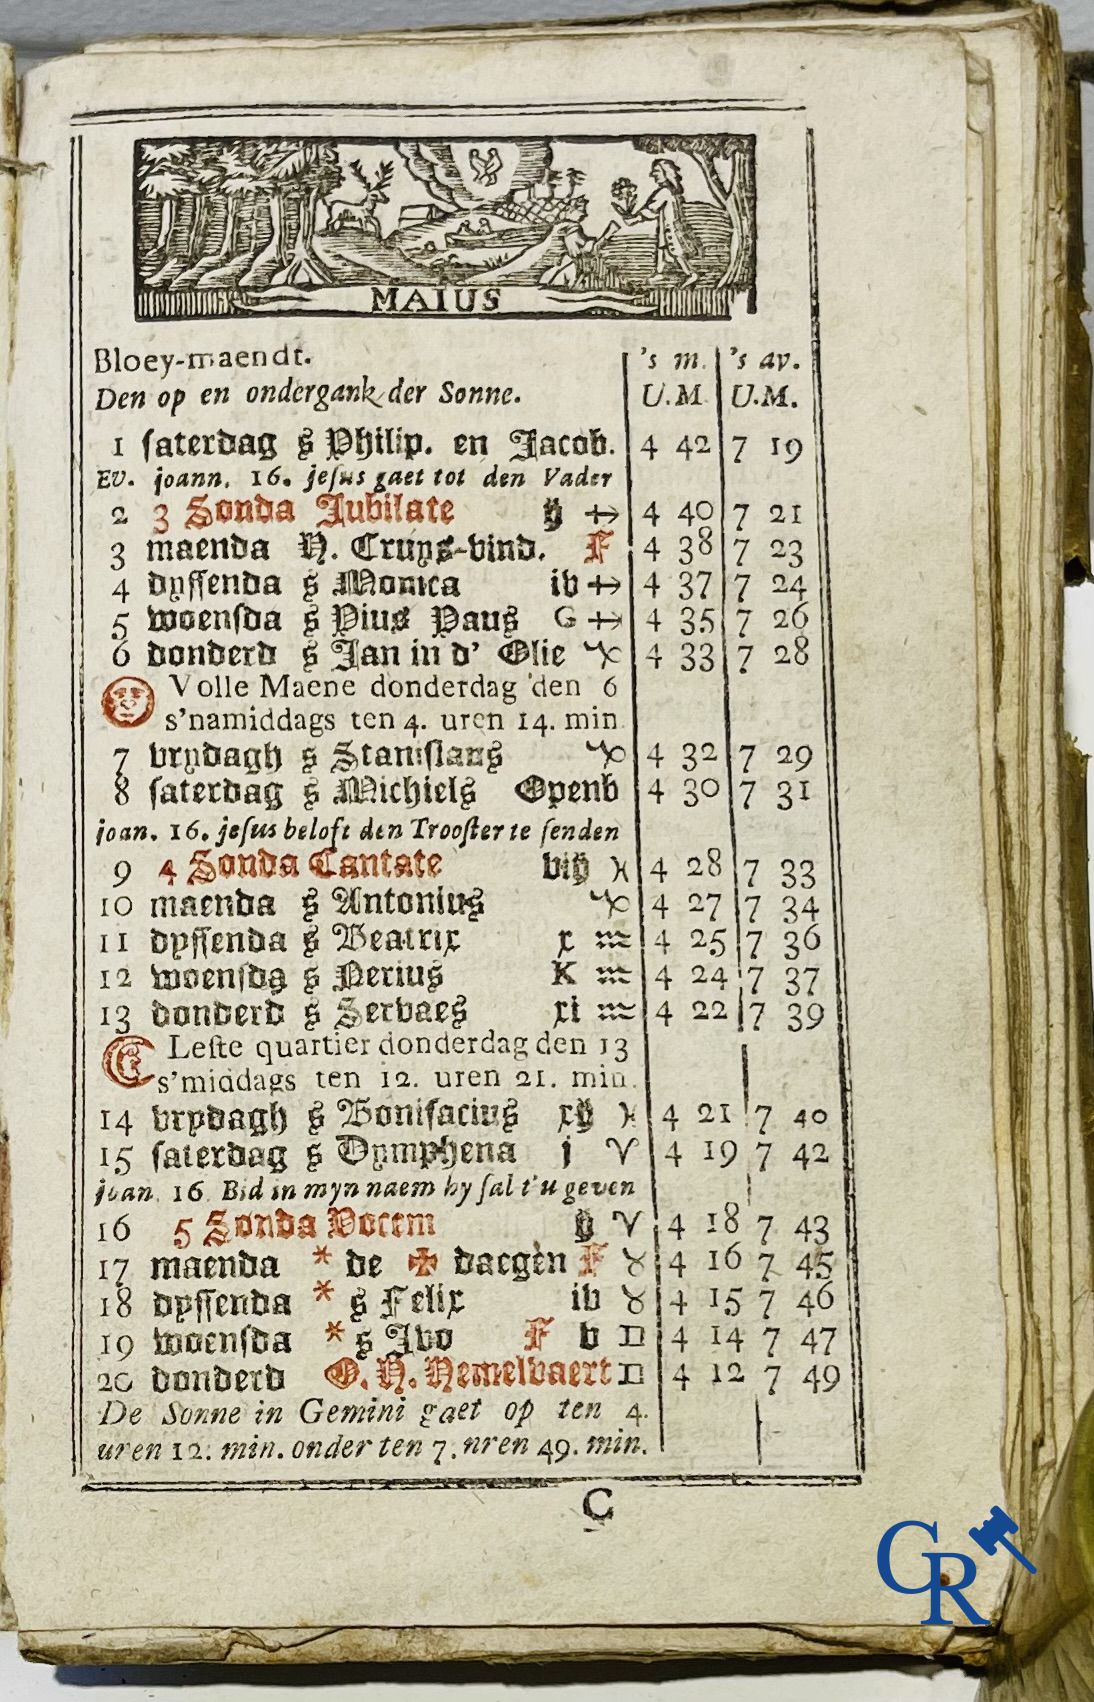 MAIUS
Bloey-maendt. 's m. 's av.
Den op en ondergank der Sonne. U.M U.M.
1 ſaterdag s Philip. en Jacob. 4 42 7 19
Ev. joann. 16. jeſus gaet tot den Vader
2 3 Sonda Jubilate ij ♐ 4 40 7 21
3 maenda H. Cruys-vind. F 4 38 7 23
4 dyſſenda s Monica iv ♐ 4 37 7 24
5 woenſda s Pius Paus G ♐ 4 35 7 26
6 donderd s Jan in d' Olie ♑ 4 33 7 28
Volle Maene donderdag den 6
s'namiddags ten 4. uren 14. min
7 vrydagh s Staniſlaus ♑ 4 32 7 29
8 ſaterdag s Michiels Openb 4 30 7 31
joan. 16. jeſus beloft den Trooſter te ſenden
9 4 Sonda Cantate viij ♓ 4 28 7 33
10 maenda s Antonius ♑ 4 27 7 34
11 dyſſenda s Beatrix x ♒ 4 25 7 36
12 woenſda s Nerius K ♒ 4 24 7 37
13 donderd s Servaes xi ♒ 4 22 7 39
Leſte quartier donderdag den 13
s'middags ten 12. uren 21. min.
14 vrydagh s Bonifacius xij ♓ 4 21 7 40
15 ſaterdag s Dymphena j ♈ 4 19 7 42
joan 16 Bid in myn naem hy ſal t'u geven
16 5 Sonda Vocem ij ♈ 4 18 7 43
17 maenda * de ✠ daegen F ♉ 4 16 7 45
18 dyſſenda * s Felix iv ♉ 4 15 7 46
19 woenſda * s Ivo F v ♊ 4 14 7 47
20 donderd O. H. Hemelvaert ♊ 4 12 7 49
De Sonne in Gemini gaet op ten 4.
uren 12. min. onder ten 7. nren 49. min.
C
CR